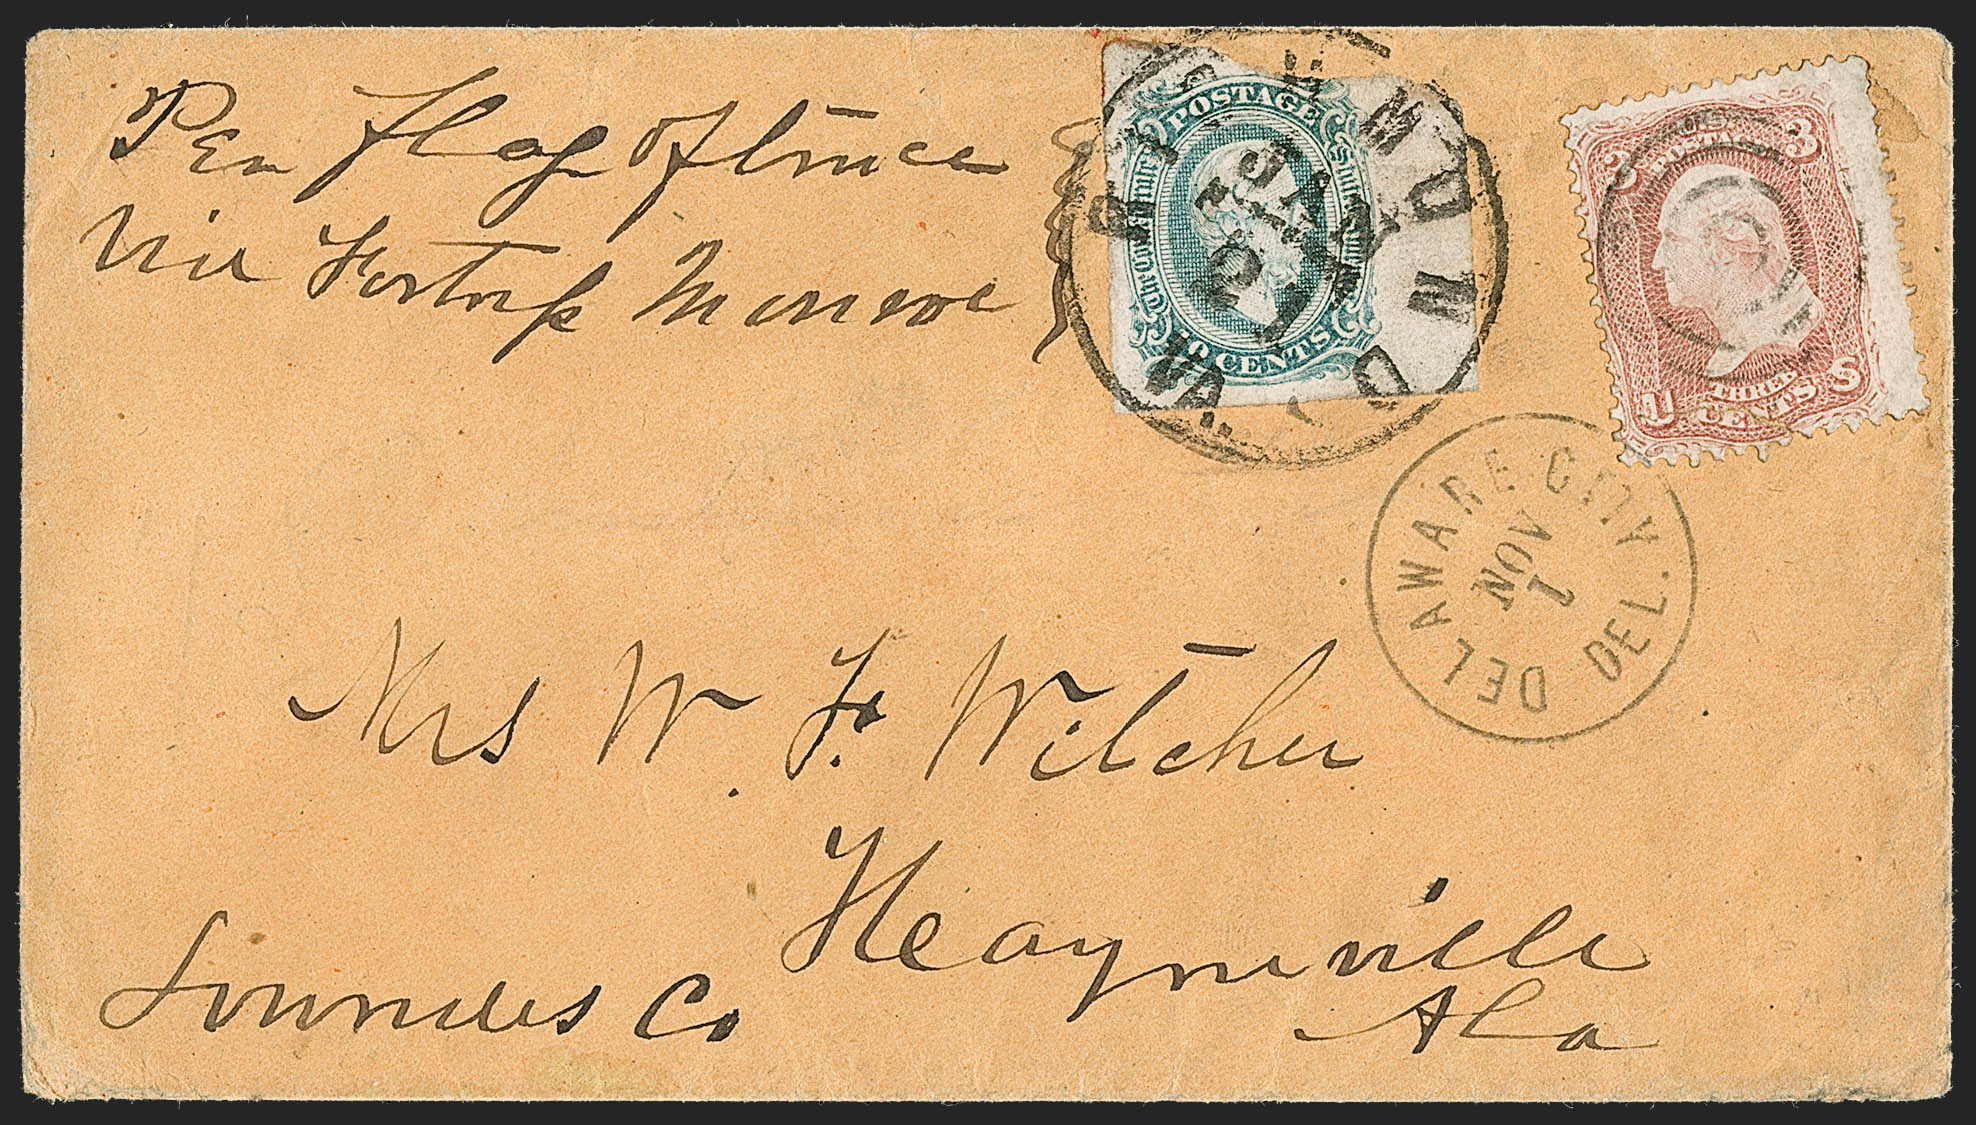 Per flag of truce
via Fortress Monroe
POSTAGE
10 CENTS
RICHMOND
VA.
3 POSTAGE 3
U THREE S
CENTS
DELAWARE CITY. DEL.
NOV
1
Mrs W. F. Witcher
Heayneville
Lowndes Co
Ala